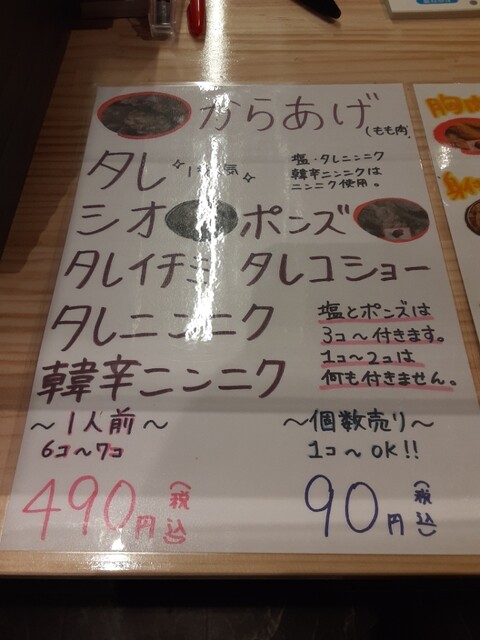 からあげ
(もも肉)
タレ
塩・タレニンニク
韓辛ニンニクは
ニンニク使用。
シオ
ポンズ
タレイチミ タレコショー
タレニンニク
韓辛ニンニク
塩とポンズは
3コ〜付きます。
1コ〜2コは
何も付きません。
〜1人前〜
6コ〜7コ
490円(税込)
〜個数売り〜
1コ〜OK!!
90円(税込)
胸肉